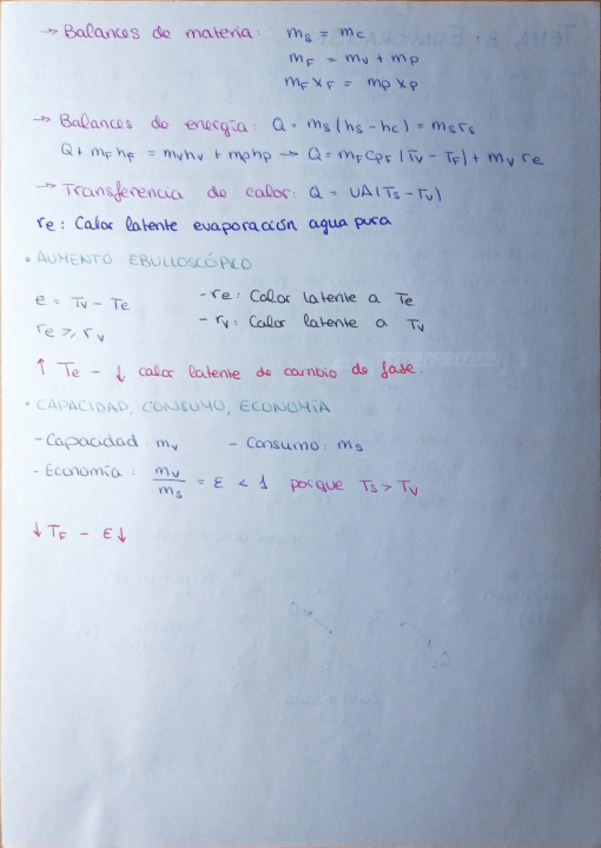 → Balances de materia: ms = mc
mF = mv + mp
mF xF = mp xp
→ Balances de energía: Q = ms (hs - hc) = ms rs
Q + mF hF = mv hv + mp hp → Q = mF CpF (Tv - TF) + mv re
→ Transferencia de calor: Q = UA (Ts - Tv)
re: Calor latente evaporación agua pura
• AUMENTO EBULLOSCÓPICO
e = Tv - Te - re: Calor latente a Te
re ≥ rv - rv: Calor latente a Tv
↑ Te - ↓ calor latente de cambio de fase.
• CAPACIDAD, CONSUMO, ECONOMÍA
- Capacidad: mv - Consumo: ms
- Economía: mv/ms = ε < 1 porque Ts > Tv
↓ TF - ε ↓